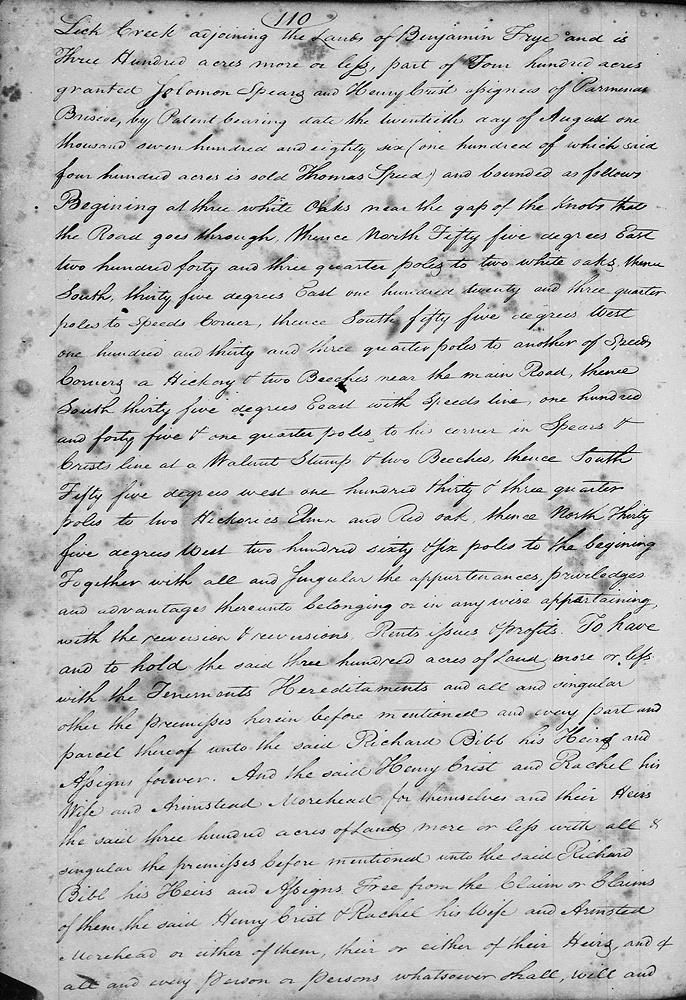 110
Lick Creek adjoining the Lands of Benjamin Frye and is
Three Hundred acres more or less, part of Four hundred acres
granted Solomon Spears and Henry Crist assignees of Parmenas
Briscoe, by Patent bearing date the twentieth day of August one
thousand seven hundred and eighty six (one hundred of which said
four hundred acres is sold Thomas Speed) and bounded as follows
Begining at three white Oaks near the gap of the Knobs that
the Road goes through, thence North Fifty five degrees East
two hundred forty and three quarter poles to two white oaks, thence
South, thirty five degrees East one hundred twenty and three quarter
poles to Speeds Corner, thence South fifty five degrees West
one hundred and thirty and three quarter poles to another of Speeds
Corners a Hickory & two Beeches near the main Road, thence
South thirty five degrees East with Speeds line, one hundred
and forty five & one quarter poles, to his corner in Spears &
Crists line at a Walnut Stump & two Beeches, thence South
Fifty five degrees west one hundred thirty & three quarter
poles to two Hickories Elm and Red oak, thence North Thirty
five degrees West two hundred sixty & six poles to the begining
Together with all and singular the appurtenances, priviledges
and advantages thereunto belonging or in any wise appertaining,
with the reversion & reversions, Rents issues & profits. To have
and to hold the said three hundred acres of Land more or less
with the Tenements Hereditaments and all and singular
other the premisses herein before mentioned and every part and
parcel thereof unto the said Richard Bibb his Heirs and
Assigns forever. And the said Henry Crist and Rachel his
Wife and Armstead Morehead for themselves and their Heirs
the said three hundred acres of Land, more or less with all &
singular the premisses before mentioned unto the said Richard
Bibb his Heirs and Assigns Free from the Claim or Claims
of them the said Henry Crist & Rachel his Wife and Armsted
Morehead or either of them, their or either of their Heirs, and of
all and every Person or Persons whatsoever shall, will and